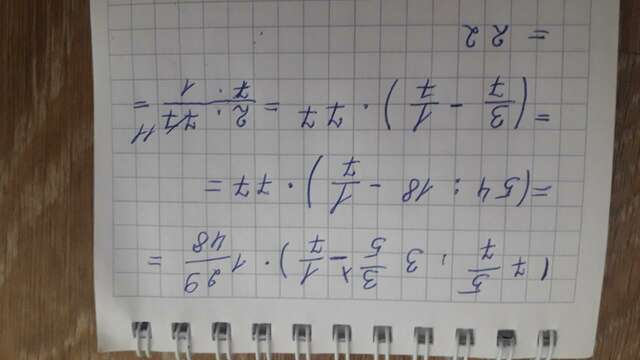 (7 5/7 : 3 3/5 - 1/7) · 1 29/48 =
= (54 : 18 - 1/7) · 77 =
= (3/7 - 1/7) · 77 = 2 · 77 11 / 7 · 1 =
= 22